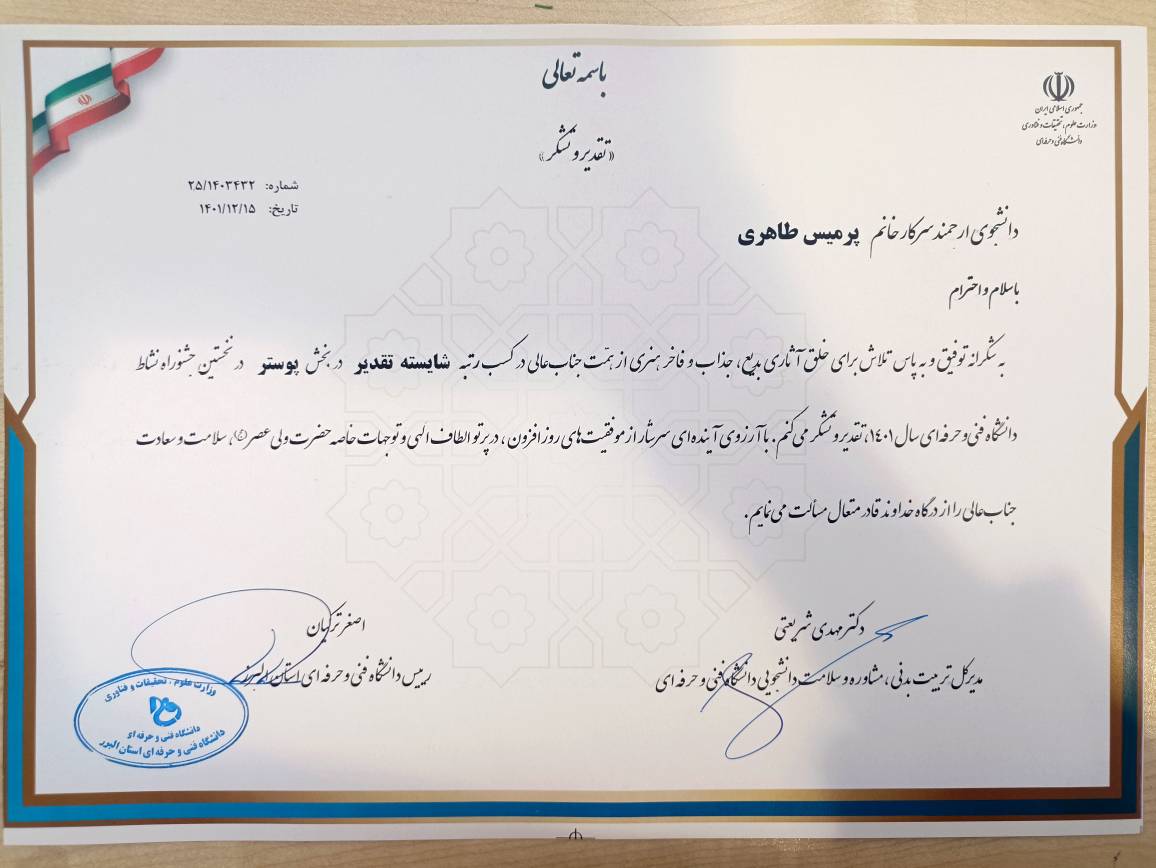 باسمه تعالی
جمهوری اسلامی ایران
وزارت علوم، تحقیقات و فناوری
دانشگاه فنی و حرفه‌ای
«تقدیر و تشکر»
شماره: ۲۵/۱۴۰۳۴۳۲
تاریخ: ۱۴۰۱/۱۲/۱۵
دانشجوی ارجمند سرکار خانم پرمیس طاهری
با سلام و احترام
به شکرانه توفیق و به پاس تلاش برای خلق آثاری بدیع، جذاب و فاخر هنری از همّت جناب عالی در کسب رتبه شایسته تقدیر در بخش پوستر در نخستین جشنواره نشاط
دانشگاه فنی و حرفه‌ای سال ۱۴۰۱، تقدیر و تشکر می‌کنم. با آرزوی آینده‌ای سرشار از موفقیت‌های روزافزون، در پرتو الطاف الهی و توجهات خاصه حضرت ولی عصر(عج)، سلامت و سعادت
جناب عالی را از درگاه خداوند قادر متعال مسألت می‌نمایم.
دکتر مهدی شریعتی
مدیرکل تربیت بدنی، مشاوره و سلامت دانشجویی دانشگاه فنی و حرفه ای
اصغر ترکیان
رییس دانشگاه فنی و حرفه ای استان البرز
وزارت علوم، تحقیقات و فناوری
دانشگاه فنی و حرفه ای
دانشگاه فنی و حرفه ای استان البرز